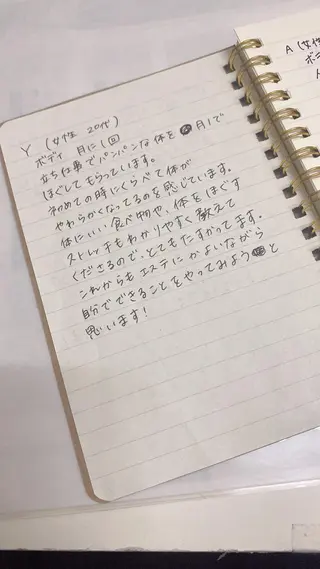 Y (女性 20代)
ボディ 月に1回
立ち仕事でパンパンな体を 月1で
ほぐしてもらってます。
初めての時にくらべて体が
やわらかくなってるのを感じています。
体にいい食べ物や、体をほぐす
ストレッチもわかりやすく教えて
くださるので、とてもたすかってます。
これからもエステにかよいながら
自分でできることをやってみようと
思います!
A (女性
ボデ